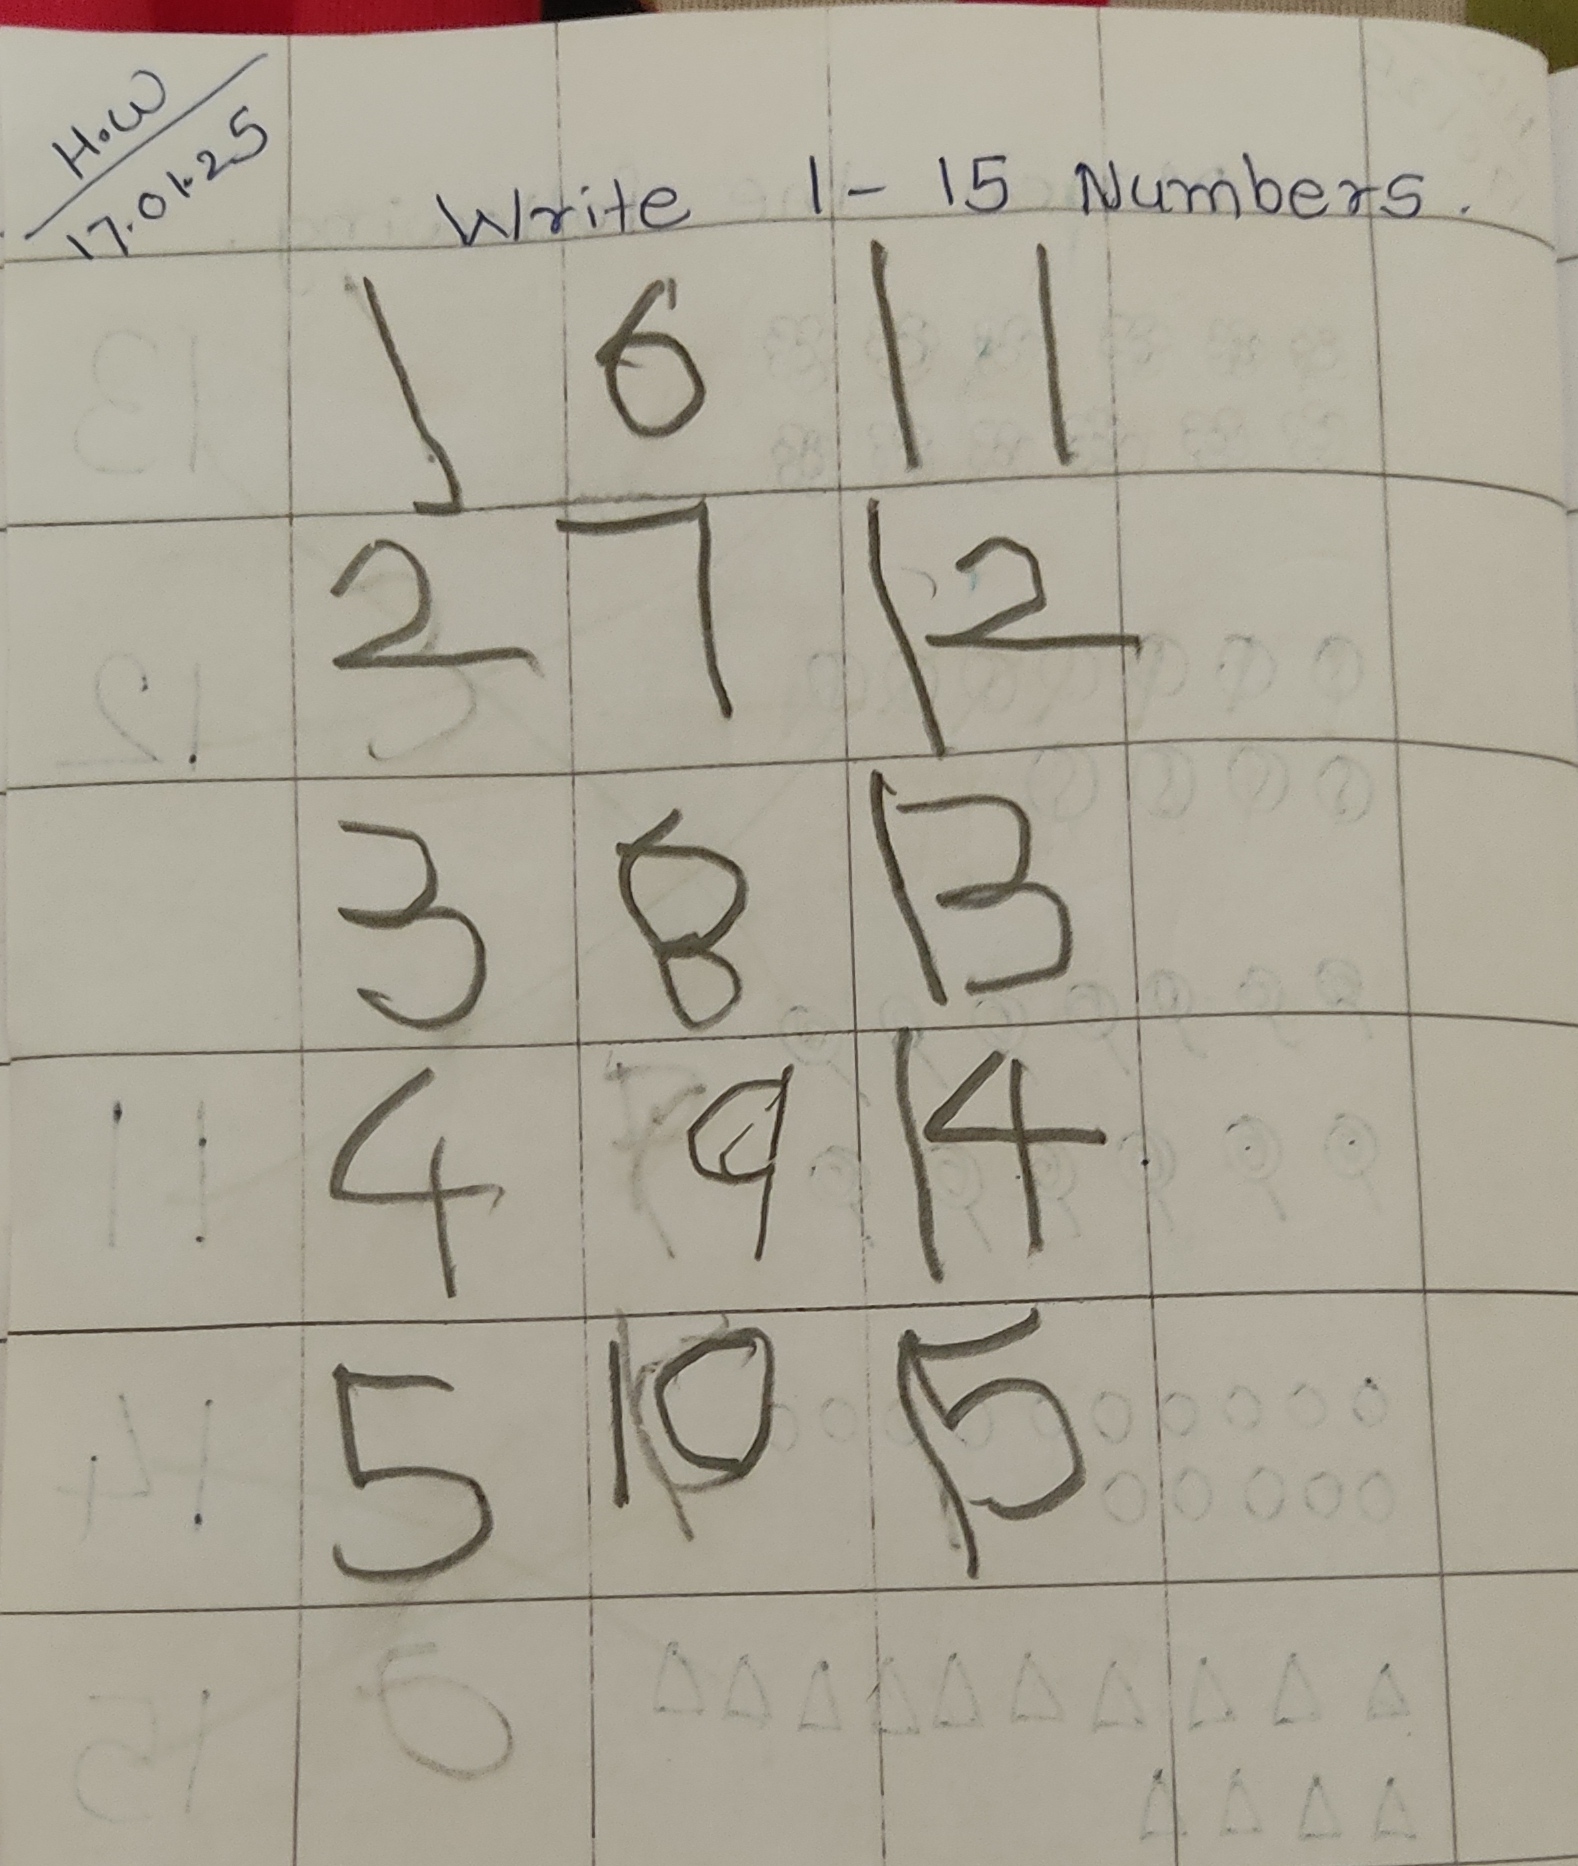 H.W
17.01.25
Write 1 - 15 Numbers.
1 6 11
2 7 12
3 8 13
4 9 14
5 10 15